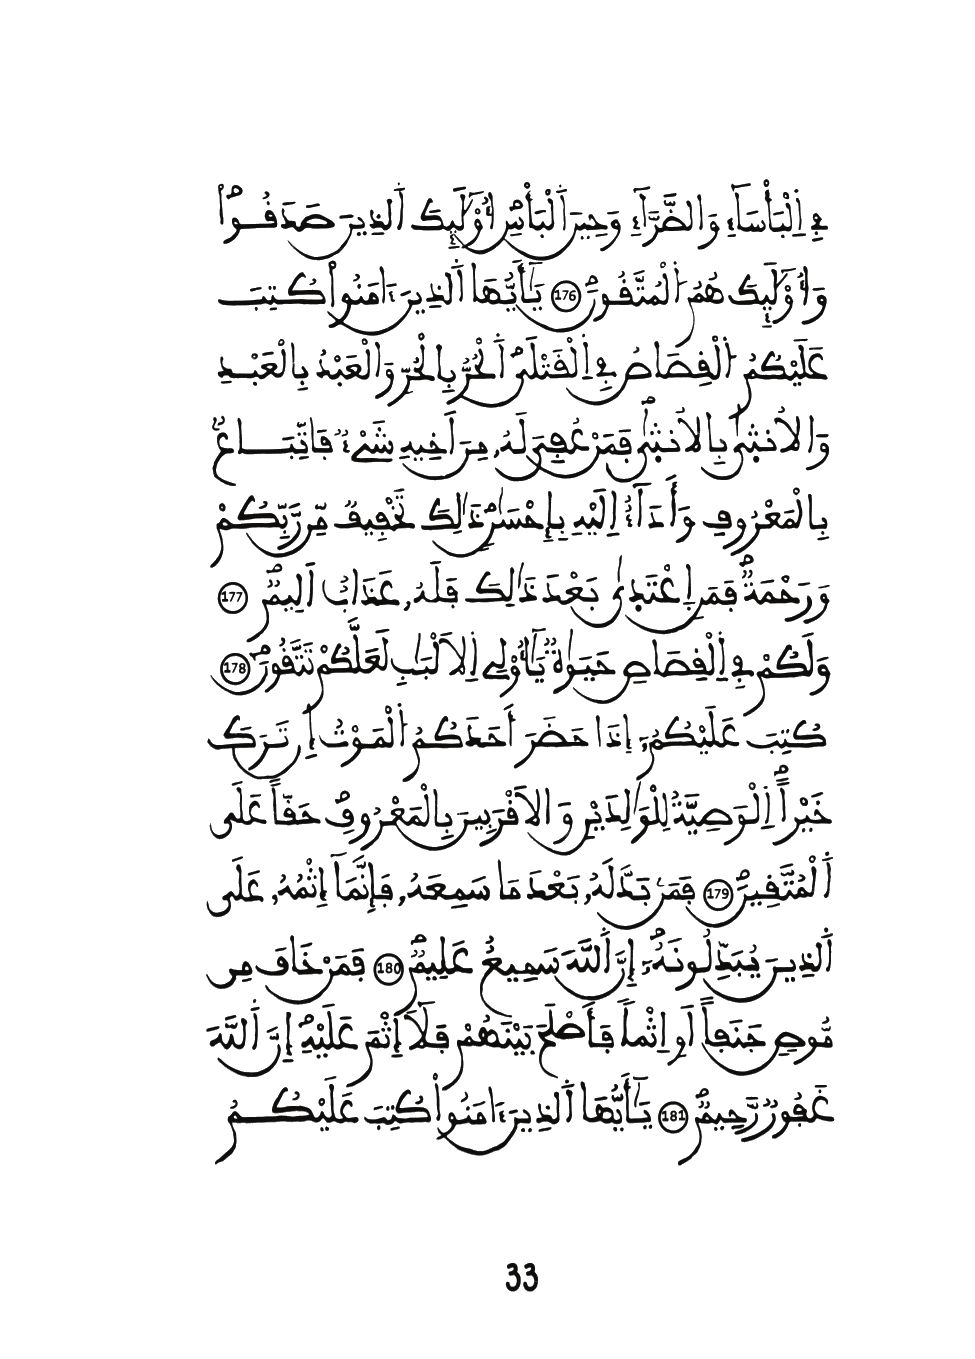 فِے اِ۬لْبَأْسَآءِ وَالضَّرَّآءِ وَحِينَ اَ۬لْبَأْسِ أُوْلَٰٓئِكَ اَ۬لذِينَ صَدَقُوا
وَأُوْلَٰٓئِكَ هُمُ اُ۬لْمُتَّقُونَ 176 يَٰٓأَيُّهَا اَ۬لذِينَ ءَامَنُوا كُتِبَ
عَلَيْكُمُ اُ۬لْقِصَاصُ فِے اِ۬لْقَتْلَي اَ۬لْحُرُّ بِالْحُرِّ وَالْعَبْدُ بِالْعَبْدِ
وَالُانث۪يٰ بِالُانث۪يٰ فَمَنْ عُفِيَ لَهُۥ مِنَ اَخِيهِ شَےْءٞ فَاتِّبَاعُۢ
بِالْمَعْرُوفِ وَأَدَآءٌ اِلَيْهِ بِإِحْسَٰنٖ ذَٰلِكَ تَخْفِيفٞ مِّن رَّبِّكُمْ
وَرَحْمَةٞ فَمَنِ اِ۪عْتَد۪يٰ بَعْدَ ذَٰلِكَ فَلَهُۥ عَذَابٌ اَلِيمٞ 177
وَلَكُمْ فِے اِ۬لْقِصَاصِ حَيَوٰةٞ يَٰٓأُوْلِے اِ۬لَالْبَٰبِ لَعَلَّكُمْ تَتَّقُونَ 178
كُتِبَ عَلَيْكُمُۥٓ إِذَا حَضَرَ أَحَدَكُمُ اُ۬لْمَوْتُ إِن تَرَكَ
خَيْراً اِ۬لْوَصِيَّةُ لِلْوَٰلِدَيْنِ وَالَاقْرَبِينَ بِالْمَعْرُوفِ حَقّاً عَلَي
اَ۬لْمُتَّقِينَ 179 فَمَنۢ بَدَّلَهُۥ بَعْدَ مَا سَمِعَهُۥ فَإِنَّمَآ إِثْمُهُۥ عَلَي
اَ۬لذِينَ يُبَدِّلُونَهُۥٓ إِنَّ اَ۬للَّهَ سَمِيعٌ عَلِيمٞ 180 فَمَنْ خَافَ مِن
مُّوصٖ جَنَفاً اَوِ اِثْماً فَأَصْلَحَ بَيْنَهُمْ فَلَآ إِثْمَ عَلَيْهِ إِنَّ اَ۬للَّهَ
غَفُورٞ رَّحِيمٞ 181 يَٰٓأَيُّهَا اَ۬لذِينَ ءَامَنُوا كُتِبَ عَلَيْكُمُ
33